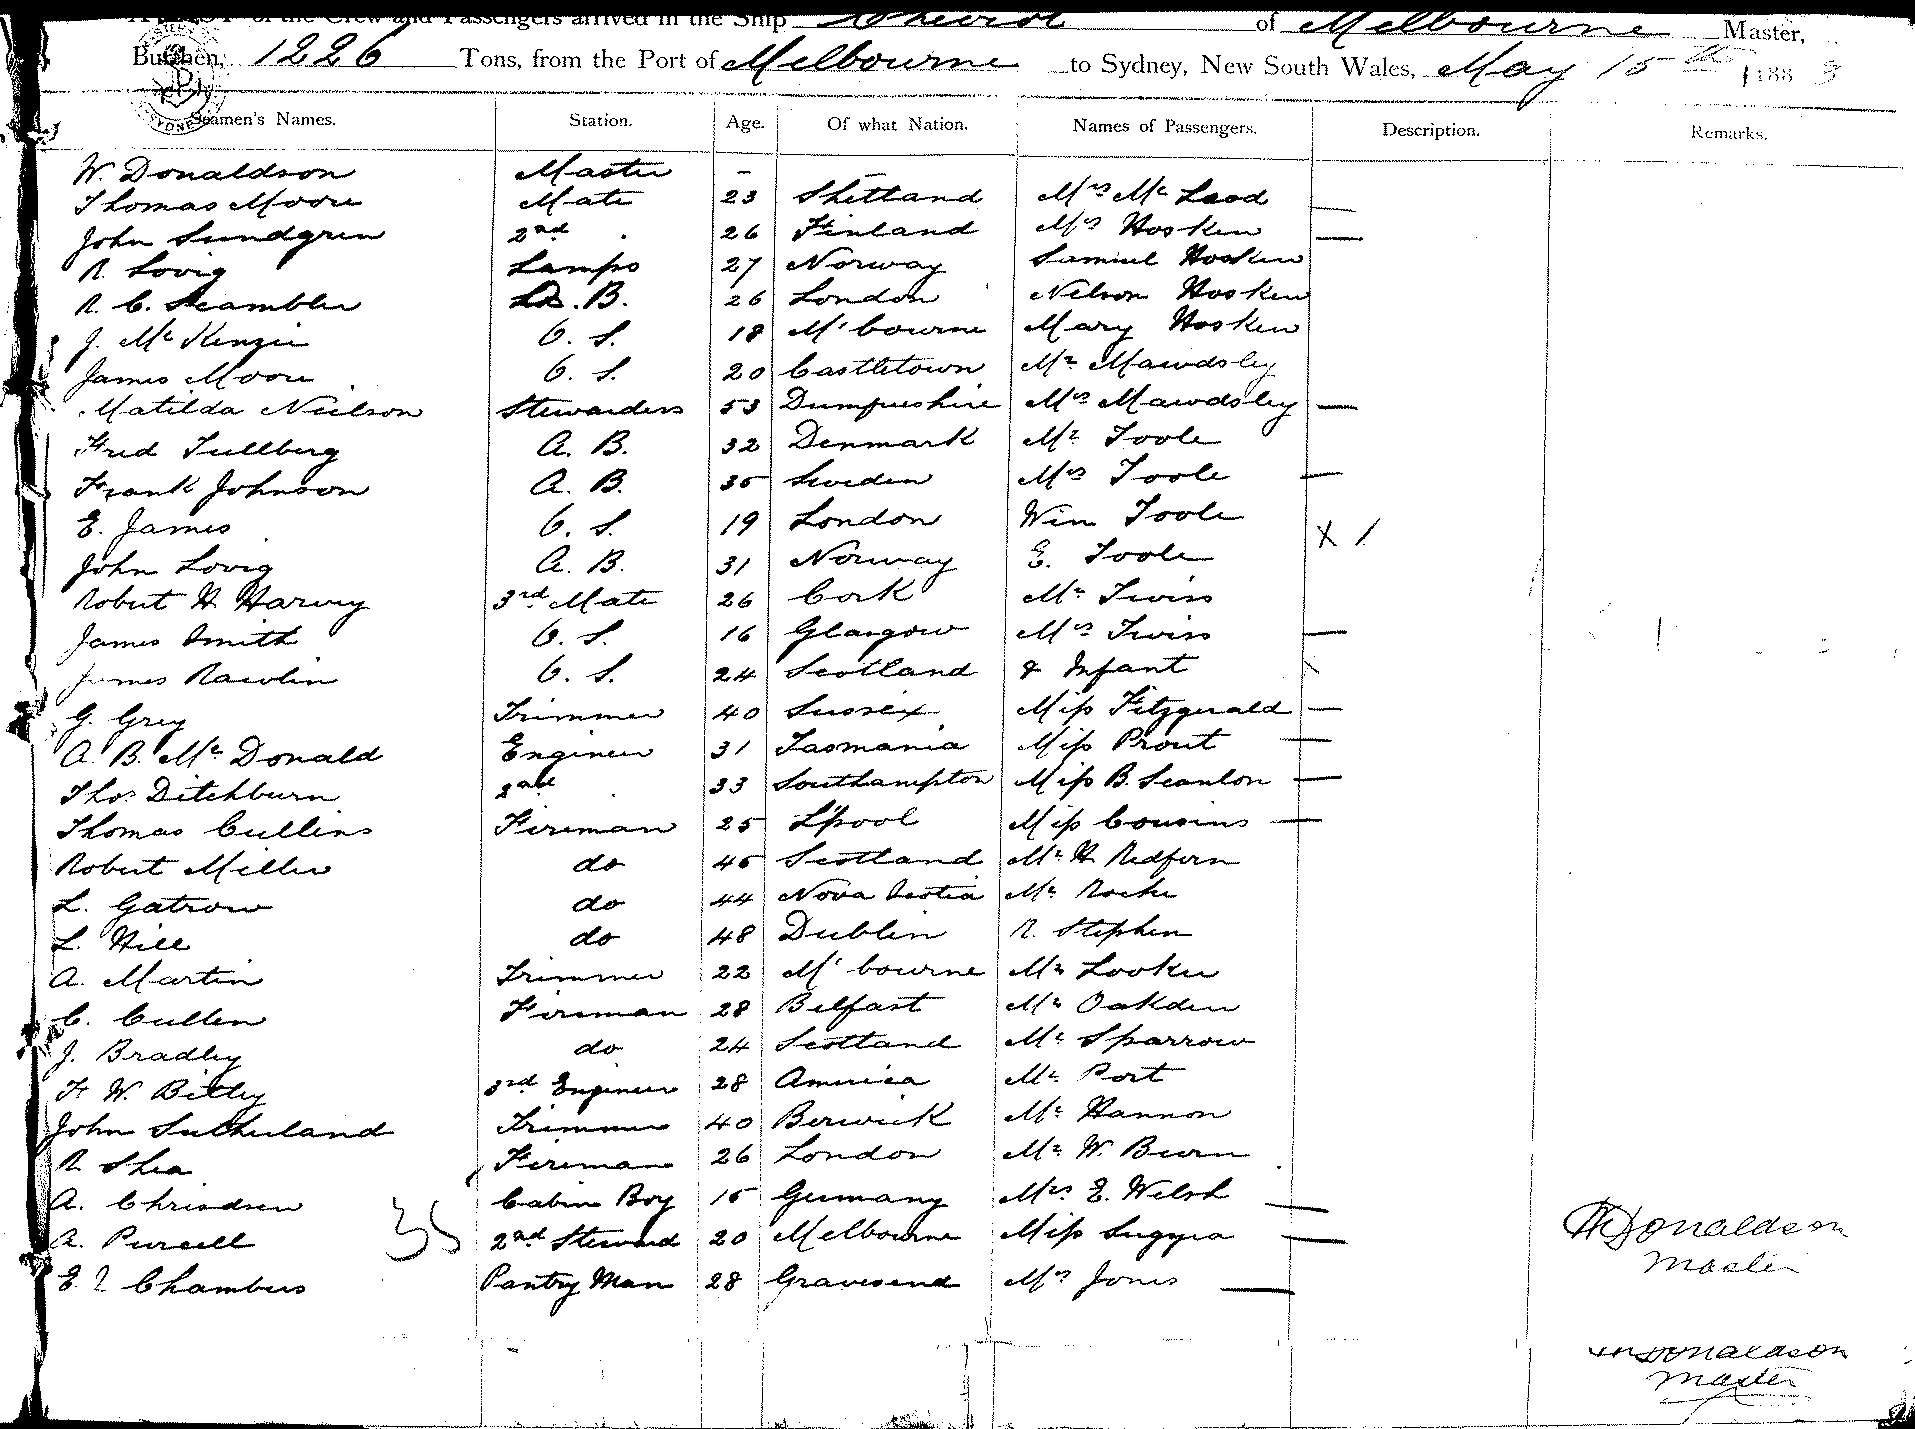 A LIST of the Crew and Passengers arrived in the Ship Cheviot of Melbourne Master,
Burthen, 1226 Tons, from the Port of Melbourne to Sydney, New South Wales, May 15th 1888
Seamen's Names. Station. Age. Of what Nation. Names of Passengers. Description. Remarks.
W. Donaldson Master –
Thomas Moore Mate 23 Shetland Mrs McLeod —
John Sundgren 2nd . 26 Finland Mrs Hosken —
R Lovig Lamps 27 Norway Samuel Hosken
R. C. Scambler B. 26 London Nelson Hosken
J. McKenzie O. S. 18 M'bourne Mary Hosken
James Moore O. S. 20 Castletown Mr Mawdsley
Matilda Neilson Stewardess 53 Dumfrieshire Mrs Mawdsley —
Fred Tullberg A. B. 32 Denmark Mr Toole
Frank Johnson A. B. 35 Sweden Mrs Toole —
E. James O. S. 19 London Win Toole X 1
John Lovig A. B. 31 Norway E. Toole
Robert H Harvey 3rd Mate 26 Cork Mr Twiss
James Smith O. S. 16 Glasgow Mrs Twiss —
James Rawlin O. S. 24 Scotland & Infant \
G. Grey Trimmer 40 Sussex Miss Fitzgerald —
A. B. McDonald Engineer 31 Tasmania Miss Prout —
Thos Ditchburn 2nd 33 Southampton Miss B. Scanlon —
Thomas Cullins Fireman 25 L'pool Miss Cousins —
Robert Miller do 45 Scotland Mr H Redfern
L. Gatrow do 44 Nova Scotia Mr Roche
L. Hill do 48 Dublin R. Stephen
A. Martin Trimmer 22 M'bourne Mr Looker
C. Cullen Fireman 28 Belfast Mr Oakden
J. Bradley do 24 Scotland Mr Sparrow
F W. Bitley 3rd Engineer 28 America Mr Port
John Sutherland Trimmer 40 Berwick Mr Hannon
R Shea Fireman 26 London Mr W. Burn
A. Chrisdsen Cabin Boy 15 Germany Mrs E. Welsh —
A. Purcell 35 2nd Steward 20 Melbourne Miss —
E Chambers Pantry Man 28 Gravesend Mrs Jones —
W Donaldson
Master
Wm Donaldson
Master